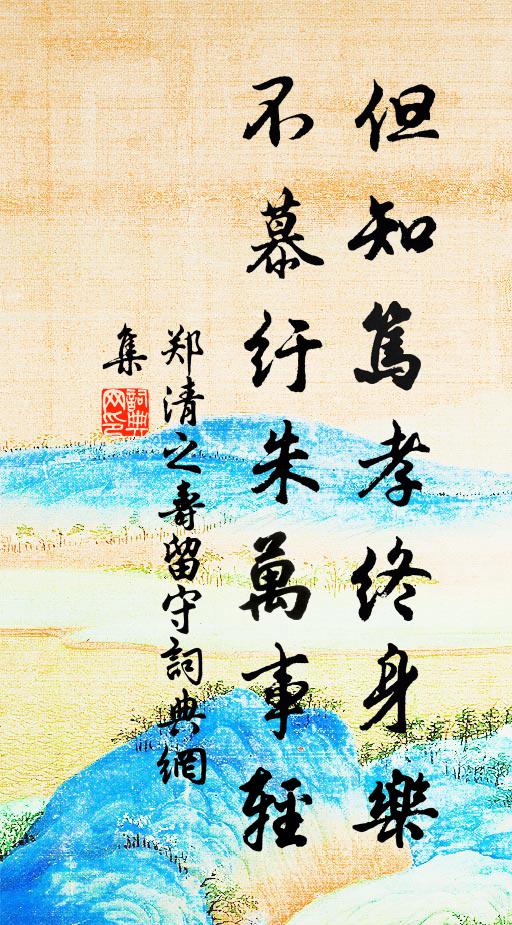 但知篤孝終身樂
不慕紆朱萬事輕
郑清之壽留守詞典網
集
詞典
网印